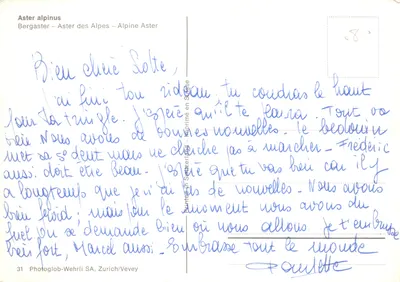 Aster alpinus
Bergaster – Aster des Alpes – Alpine Aster
Bien chère Lotte,
j'ai fini ton rideau, tu coudras le haut
pour la tringle. J'espère qu'il te plaira. Tout va
bien. Nous avons de bonnes nouvelles. le bedouin
met sa dent mais ne cherche pas à marcher – Frédéric
aussi doit être beau. J'espère que tu vas bien car il y
a longtemps que je n'ai pas de nouvelles – Nous avons
bien froid ; mais pour le moment nous avons du
fuel on se demande bien où nous allons je t'embrasse
bien fort, Marcel aussi – Embrasse tout le monde
Paulette
31 Photoglob-Wehrli SA, Zürich/Vevey